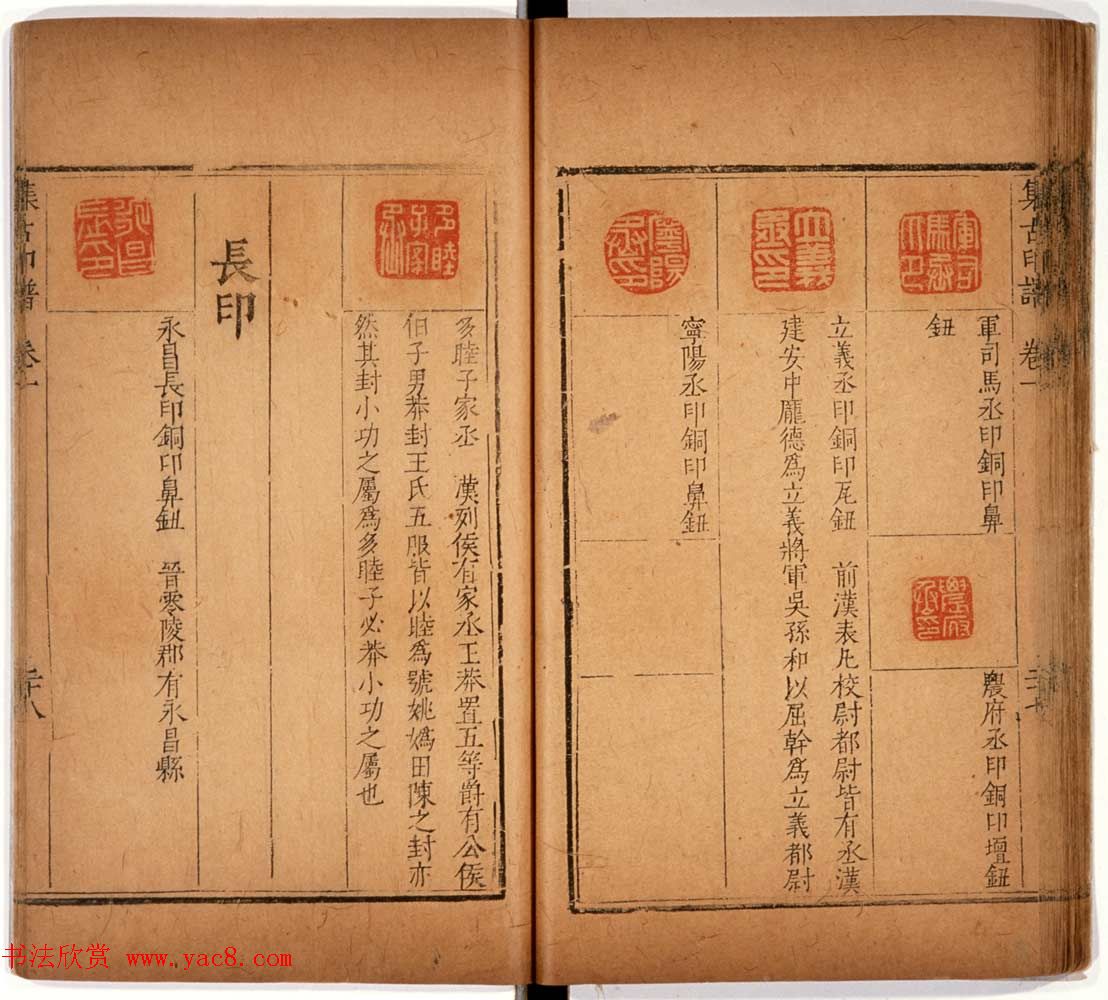 集古印譜 卷一
軍司馬丞印銅印鼻
鈕
農府丞印銅印壇鈕
立義丞印銅印瓦鈕 前漢表凡校尉都尉皆有丞漢
建安中龐德爲立義將軍吳孫和以屈幹爲立義都尉
寧陽丞印銅印鼻鈕
多睦子家丞 漢列侯有家丞王莽置五等爵有公侯
伯子男莽封王氏五服皆以睦爲號姚嬀田陳之封亦
然其封小功之屬爲多睦子必莽小功之屬也
長印
永昌長印
永昌長印銅印鼻鈕 晉零陵郡有永昌縣
集古印譜 卷一 二十八
书法欣赏 www.yac8.com